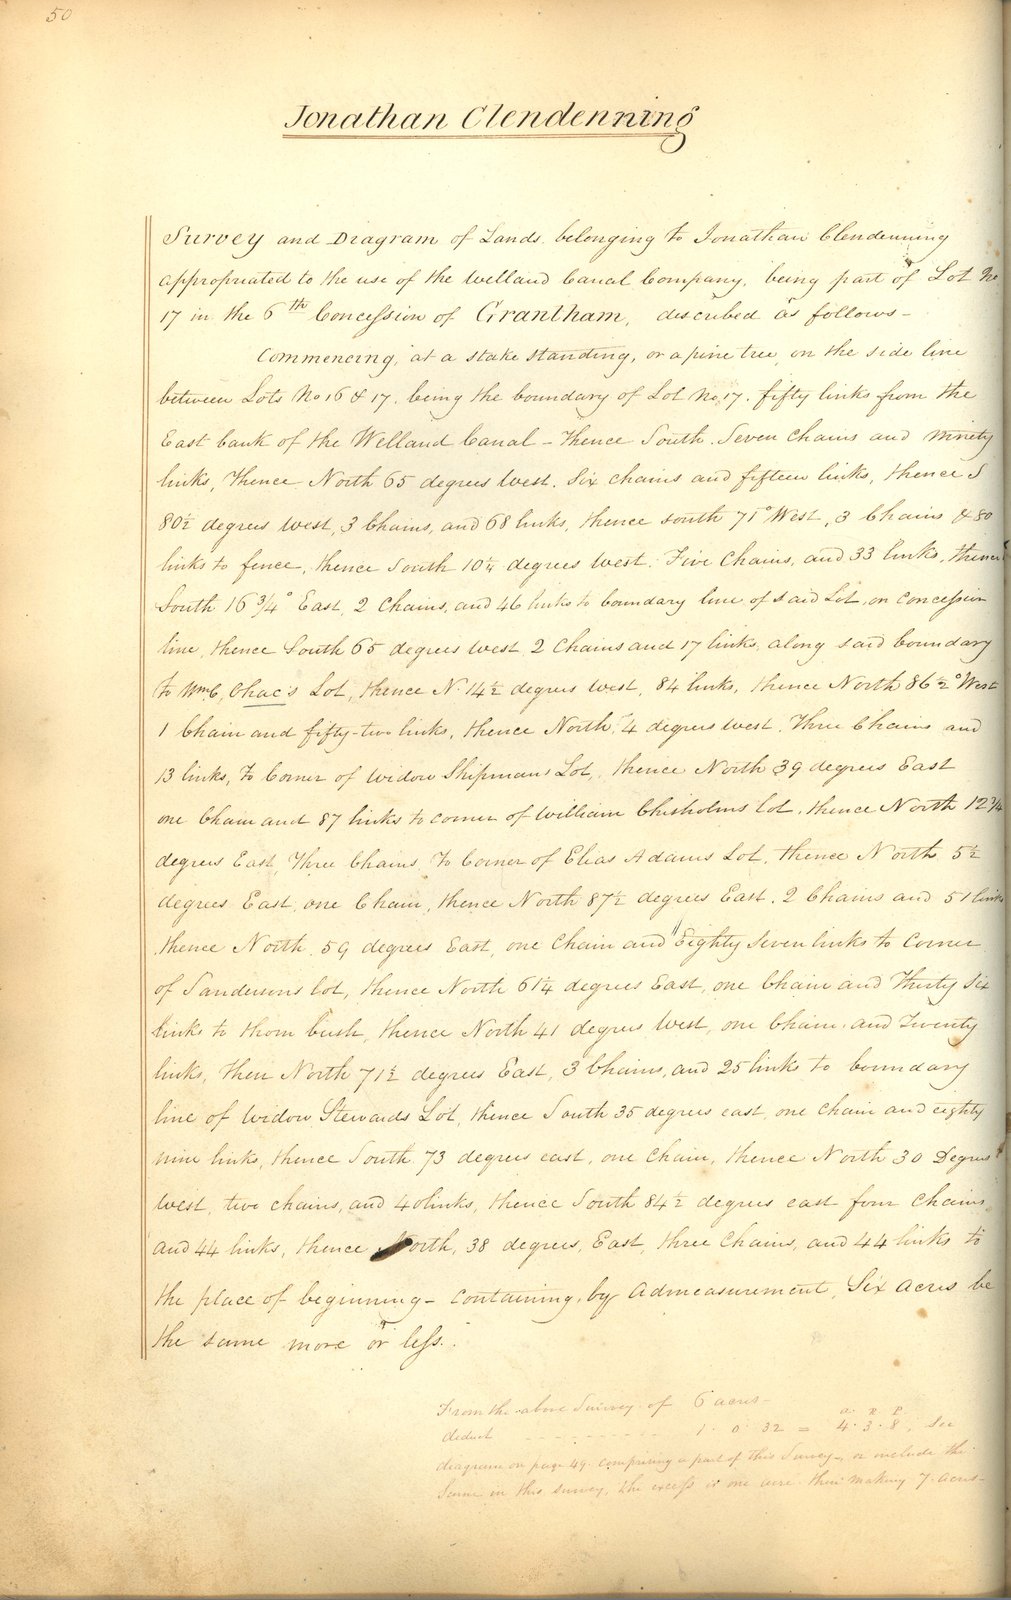 50
Jonathan Clendenning
Survey and Diagram of Lands belonging to Jonathan Clendenning
appropriated to the use of the Welland Canal Company, being part of Lot No
17 in the 6th Concession of Grantham, described as follows –
Commencing, at a stake standing, or a pine tree, on the side line
between Lots No 16 & 17, being the boundary of Lot No 17. fifty links from the
East bank of the Welland Canal – Thence South Seven chains and ninety
links, Thence North 65 degrees West. Six chains and fifteen links, thence S
80½ degrees west, 3 Chains, and 68 links, thence south 71° West, 3 Chains & 80
links to fence, thence South 10¼ degrees west. Five Chains, and 33 links, thence
South 16 3/4° East, 2 Chains, and 46 links to boundary line of said Lot, on concession
line, thence South 65 degrees west 2 Chains and 17 links, along said boundary
To Wm C, Chac's Lot, thence N. 14½ degrees west, 84 links, thence North 86½° West
1 Chain and fifty-two links, thence North 4 degrees west. Three Chains and
13 links, To Corner of Widow Shipmans Lot, thence North 39 degrees East
one Chain and 87 links to corner of William Chisholms lot, thence North 12 3/4
degrees East, Three Chains To Corner of Elias Adams Lot, thence North 5½
degrees East, one Chain, thence North 87½ degrees East. 2 Chains and 51 links
thence North 59 degrees East, one Chain and Eighty Seven links to Corner
of Sandersons lot, thence North 61¼ degrees East, one Chain and Thirty Six
links to thorn bush, thence North 41 degrees West, one Chain, and Twenty
links, then North 71½ degrees East, 3 Chains, and 25 links to boundary
line of Widow Stewards Lot, thence South 35 degrees east, one chain and eighty
nine links, thence South 73 degrees east, one Chain, thence North 30 Degrees
West, two chains, and 40 links, thence South 84½ degrees east four Chains,
and 44 links, thence North, 38 degrees, East, three Chains, and 44 links to
the place of beginning – containing, by admeasurement, Six acres be
the same more or less.
From the above Survey of 6 acres –
a. R. P.
deduct 1. 0. 32 = 4. 3. 8, See
diagram on page 49. comprising a part of this Survey –, or include the
Same in this survey, the excess is one acre. then making 7. acres –